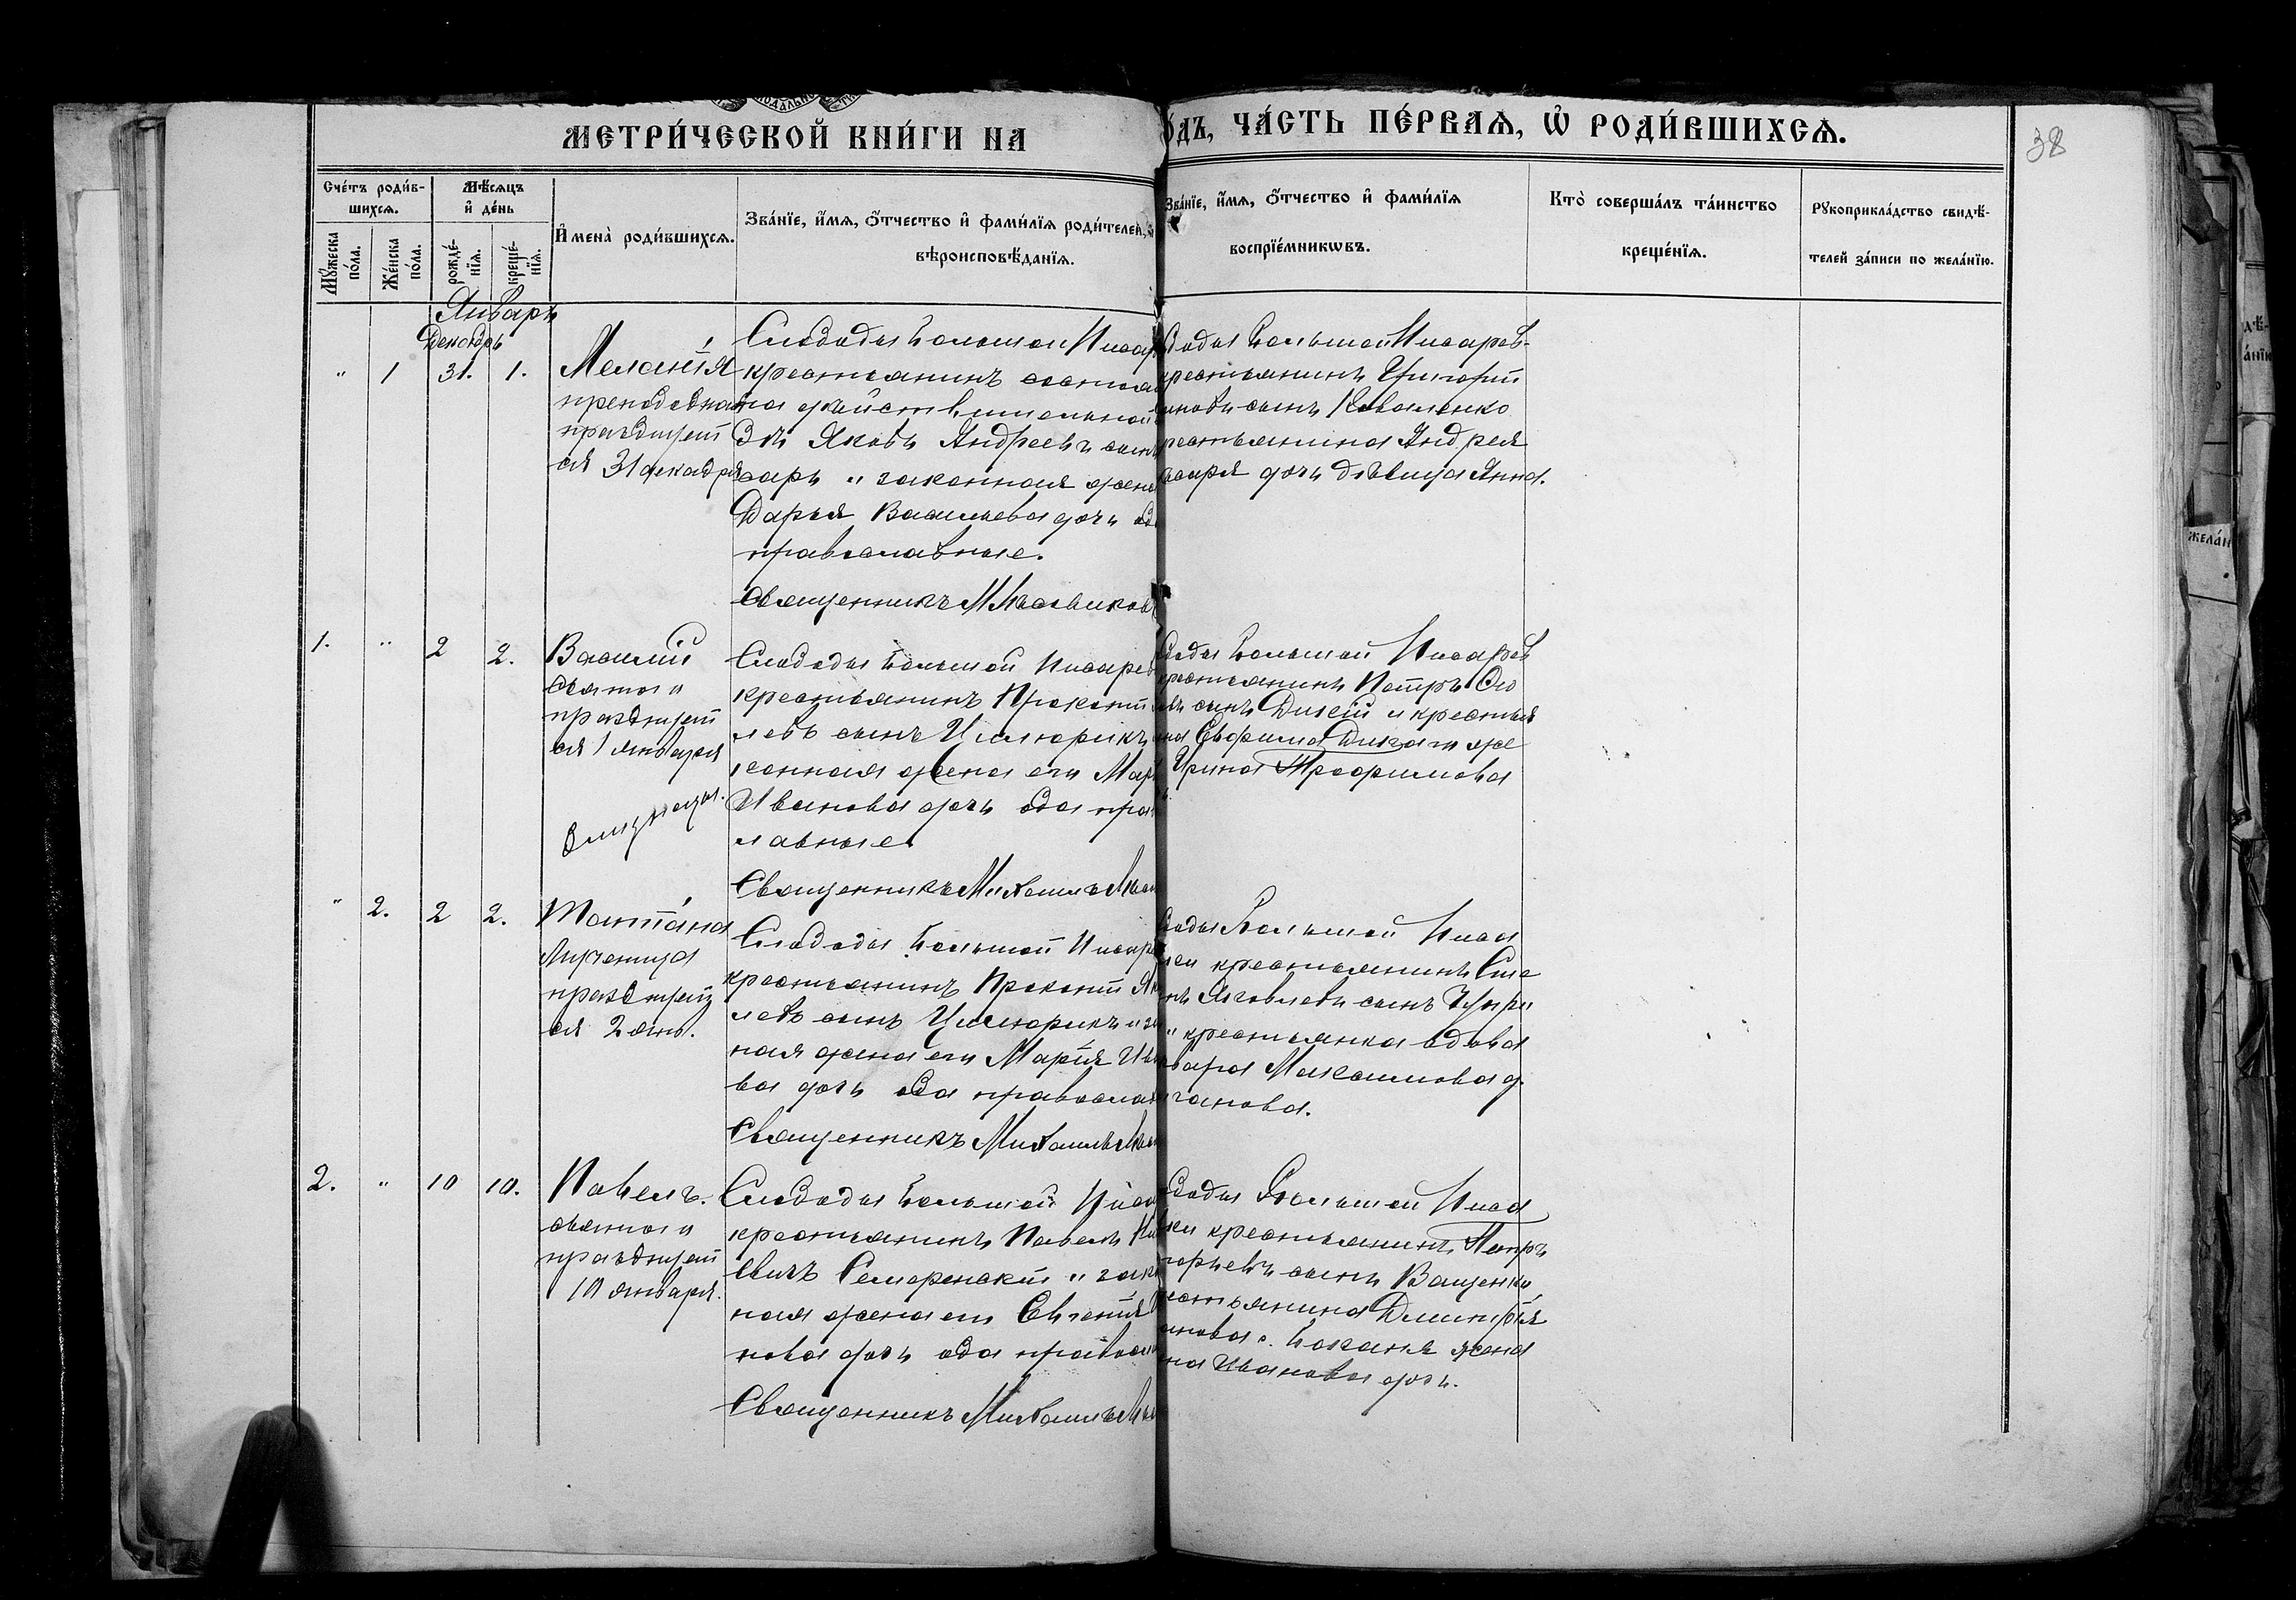 МЕТРИ́ЧЕСКОЙ КНИ́ГИ НА
О́ДЪ, ЧА́СТЬ ПЕ́РВАѦ, Ѡ҆ РОДИ́ВШИХСѦ.
38
Сче́тъ роди́в-
шихсѧ.
Мꙋ́жеска по́ла.
Же́нска по́ла.
Мѣ́сѧцъ
и҆ де́нь
рожде́-
нїѧ.
креще́-
нїѧ.
И҆мена̀ роди́вшихсѧ.
Зва́нїе, и҆́мѧ, ѻ҆́тчество и҆ фами́лїѧ роди́телей,
вѣроисповѣ́данїѧ.
Зва́нїе, и҆́мѧ, ѻ҆́тчество и҆ фами́лїѧ
воспрїе́мникѡвъ.
Кто̀ соверша́лъ та́инство
креще́нїѧ.
Рꙋкоприкла́дство свидѣ́-
телей за́писи по жела́нїю.
Январь
Декабрь
" 1 31. 1.
Меланія
преподобная
празднует
ся 31 декабря
Слободы Большой Писар
крестьянинъ состоя
на действительной
Яковъ Андреевъ сынъ
сарь и законная жена
Дарья Васильева дочь об
православные.
Священникъ М Мысликовъ
боды Большой Писарев-
крестьянинъ Григорій
новъ сынъ Коваленко
рестьянина Андрея
саря дочь дѣвица Анна.
1. " 2 2.
Василій
святого
празднует
ся 1 января
Близнецы.
Слободы Большой Писарев
крестьянинъ Прокопій
левъ сынъ Цицюрикъ
конная жена его Мар
Ивановна дочь оба пра
лавные
Священникъ Михаилъ
боды Большой Писарев
рестьянинъ Петръ
въ сынъ Дикій и крестья
на Евфима Дикаго же
Ирина Трофимова
" 2. 2 2.
Татіана
Мученица
празднует
ся 2 янв.
Слободы Большой Писаре
крестьянинъ Прокопій Як
левъ сынъ Цицюрикъ и за
ная жена его Марія Ива
ва дочь оба православ
Священникъ Михаилъ
боды Большой Писа
ки крестьянинъ Сте
нъ Яковлевъ сынъ
и крестьянка вдова
вара Максимова д
ганова.
2. " 10 10.
Павелъ.
святого
празднует
10 января.
Слободы Большой Писа
крестьянинъ Павелъ
евичъ Семеренскій и зако
ная жена его Евгенія
нова дочь оба правосл
Священникъ Михаилъ
боды Большой Писа
ки крестьянинъ Петръ
горьевъ сынъ Ващенко
рестьянина Димитрія
анова с. жена
на Иванова дочь.